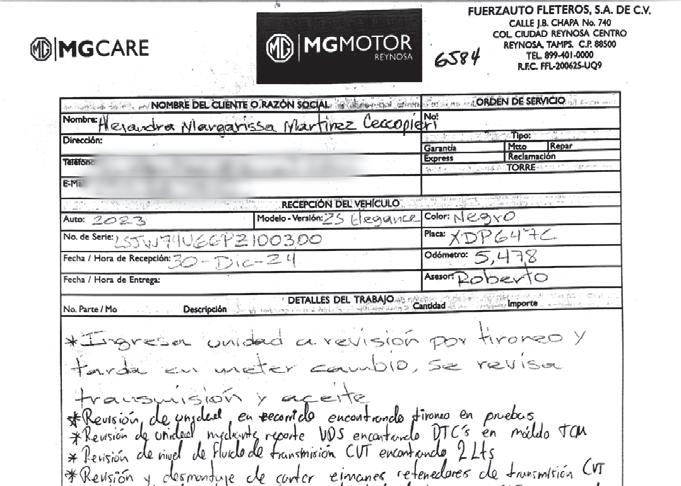 MG MGCARE
MG MGMOTOR
REYNOSA
6584
FUERZAUTO FLETEROS, S.A. DE C.V.
CALLE J.B. CHAPA No. 740
COL. CIUDAD REYNOSA CENTRO
REYNOSA, TAMPS. C.P. 88500
TEL. 899-401-0000
R.F.C. FFL-200625-UQ9
NOMBRE DEL CLIENTE O RAZÓN SOCIAL
ORDEN DE SERVICIO
Nombre: Alejandra Margarissa Martinez Ceccopieri
No:
Dirección:
Tipo:
Garantía Mtto Repar
Express Reclamación
Teléfono
TORRE
E-Ma
RECEPCIÓN DEL VEHÍCULO
Auto: 2023 Modelo - Versión: ZS Elegance Color: Negro
No. de Serie: Placa: XDP647C
Fecha / Hora de Recepción: 30-Dic-24 Odómetro: 5,478
Fecha / Hora de Entrega: Asesor: Roberto
DETALLES DEL TRABAJO
No. Parte / Mo Descripción Cantidad Importe
*Ingresa unidad a revisión por tironeo y
tarda en meter cambio, se revisa
transmisión y aceite
*Revisión de unidad en recorrido encontrando tironeo en pruebas
*Revisión de unidad mediante reporte VDS encontrando DTC's en módulo TCM
*Revisión de nivel de fluido de transmisión CVT encontrando 2 Lts
*Revisión y desmontaje de carter e imanes retenedores de transmisión CVT